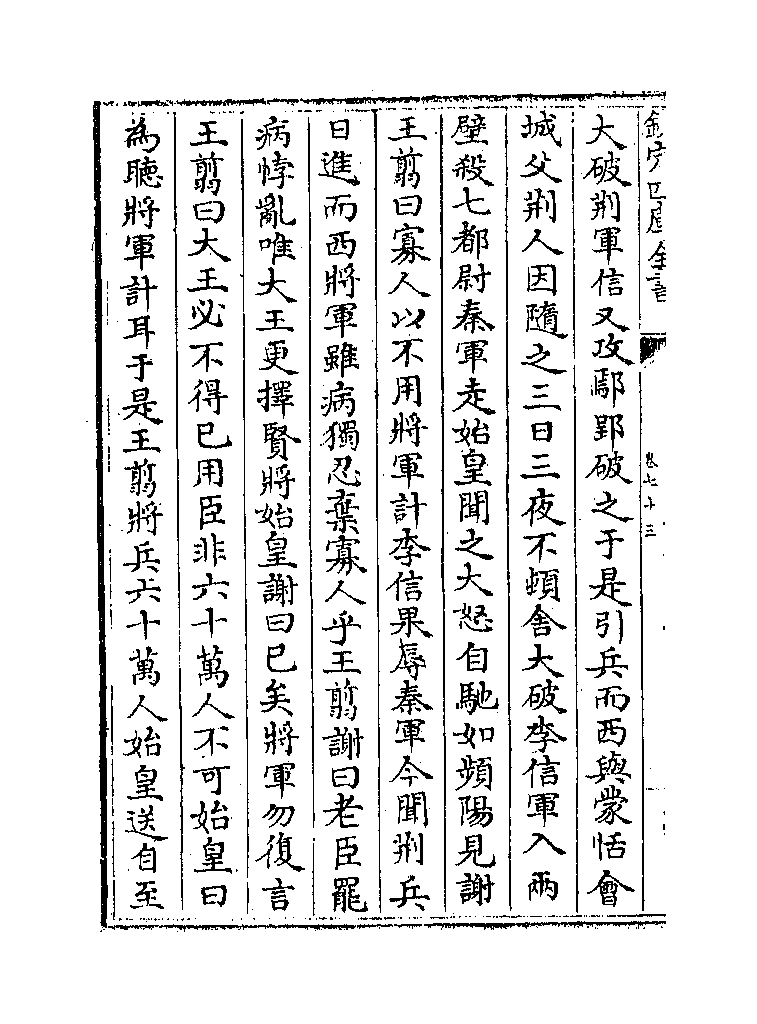 欽定四庫全書
卷七十三
大破荆軍信又攻鄢郢破之于是引兵而西與蒙恬會
城父荆人因隨之三日三夜不頓舍大破李信軍入兩
壁殺七都尉秦軍走始皇聞之大怒自馳如頻陽見謝
王翦曰寡人以不用將軍計李信果辱秦軍今聞荆兵
日進而西將軍雖病獨忍棄寡人乎王翦謝曰老臣罷
病悖亂唯大王更擇賢將始皇謝曰已矣將軍勿復言
王翦曰大王必不得已用臣非六十萬人不可始皇曰
為聽將軍計耳于是王翦將兵六十萬人始皇送自至